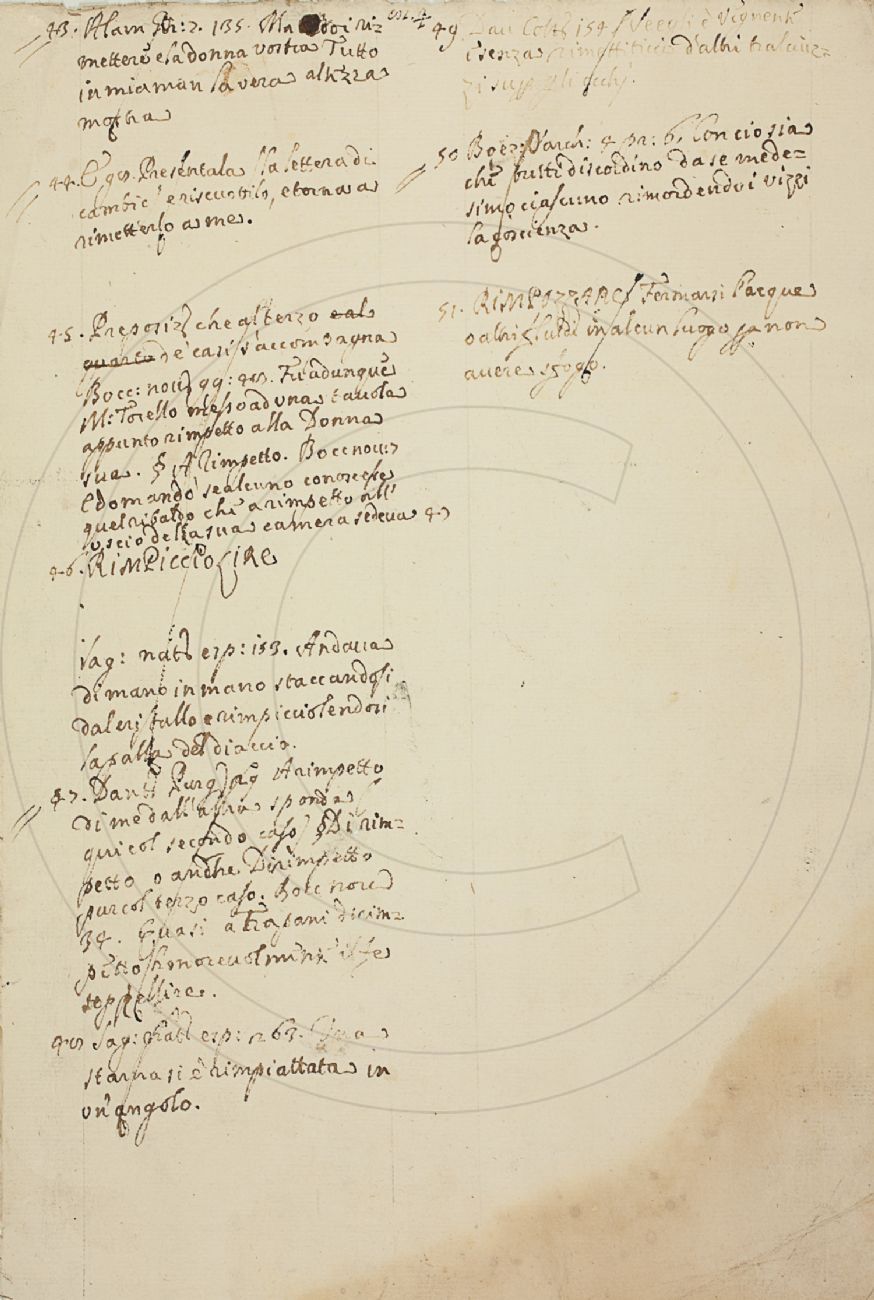 43. Alam Gir: 2. 135. Ma voi ri-
mettere e la donna vostra Tutto
in mia man la vera altezza
mostra
44. E 98. Presentala la lettera di
cambio e riscuotilo, e torna a
rimetterlo a me.
45. Preposiz che al terzo e al
quarto de' casi s'accompagna
Bocc: nov 99: 48. Fu adunque
M: Torello messo ad una tavola
appunto rimpetto alla Donna
sua. § A Rimpetto. Bocc nov: 7
E domandò se alcuno conoscesse
quel ribaldo che a rimpetto all'
uscio della sua camera sedeva
46. RIMPICCIOLIRE
Sag: nat esp: 153. Andava
di mano in mano staccandosi
dal cristallo e rimpicciolendosi
la palla del diaccio.
47. Dant Purg 29 A rimpetto
di me dall'altra sponda
qui col secondo caso § Di rim-
petto o anche Dirimpetto
pur col terzo caso. Bocc nov
34. Quasi a Trapani dirim-
petto onorevolmente il fe
seppellire.
48 Sag: nat esp: 263. Una
starna si è rimpiattata in
un'angolo.
49. Dav Colt 154 Veegli è vigneti
senza rimettiticci d'altri tralciuz-
zi su per gli occhi.
50 Boez: Varch: 4 pr: 6. Con cio sia
che tutti discordino da se mede-
simo ciascuno rimordendo i vizzi
la coscienza.
51. RIMPOZZARE Fermarsi l'acque
o altri fluidi in alcun luogo per non
avere sfogo.